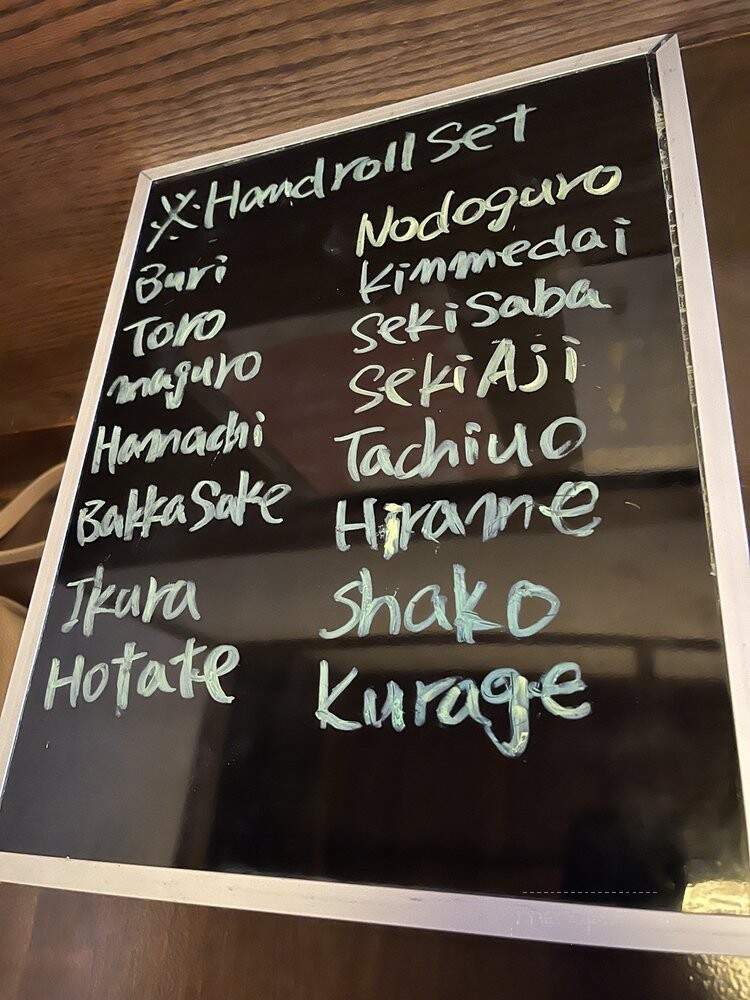 ※Handroll Set
Buri
Toro
maguro
Hamachi
Bakka Sake
Ikura
Hotate
Nodoguro
Kinmedai
Seki Saba
Seki Aji
Tachiuo
Hirame
Shako
Kurage